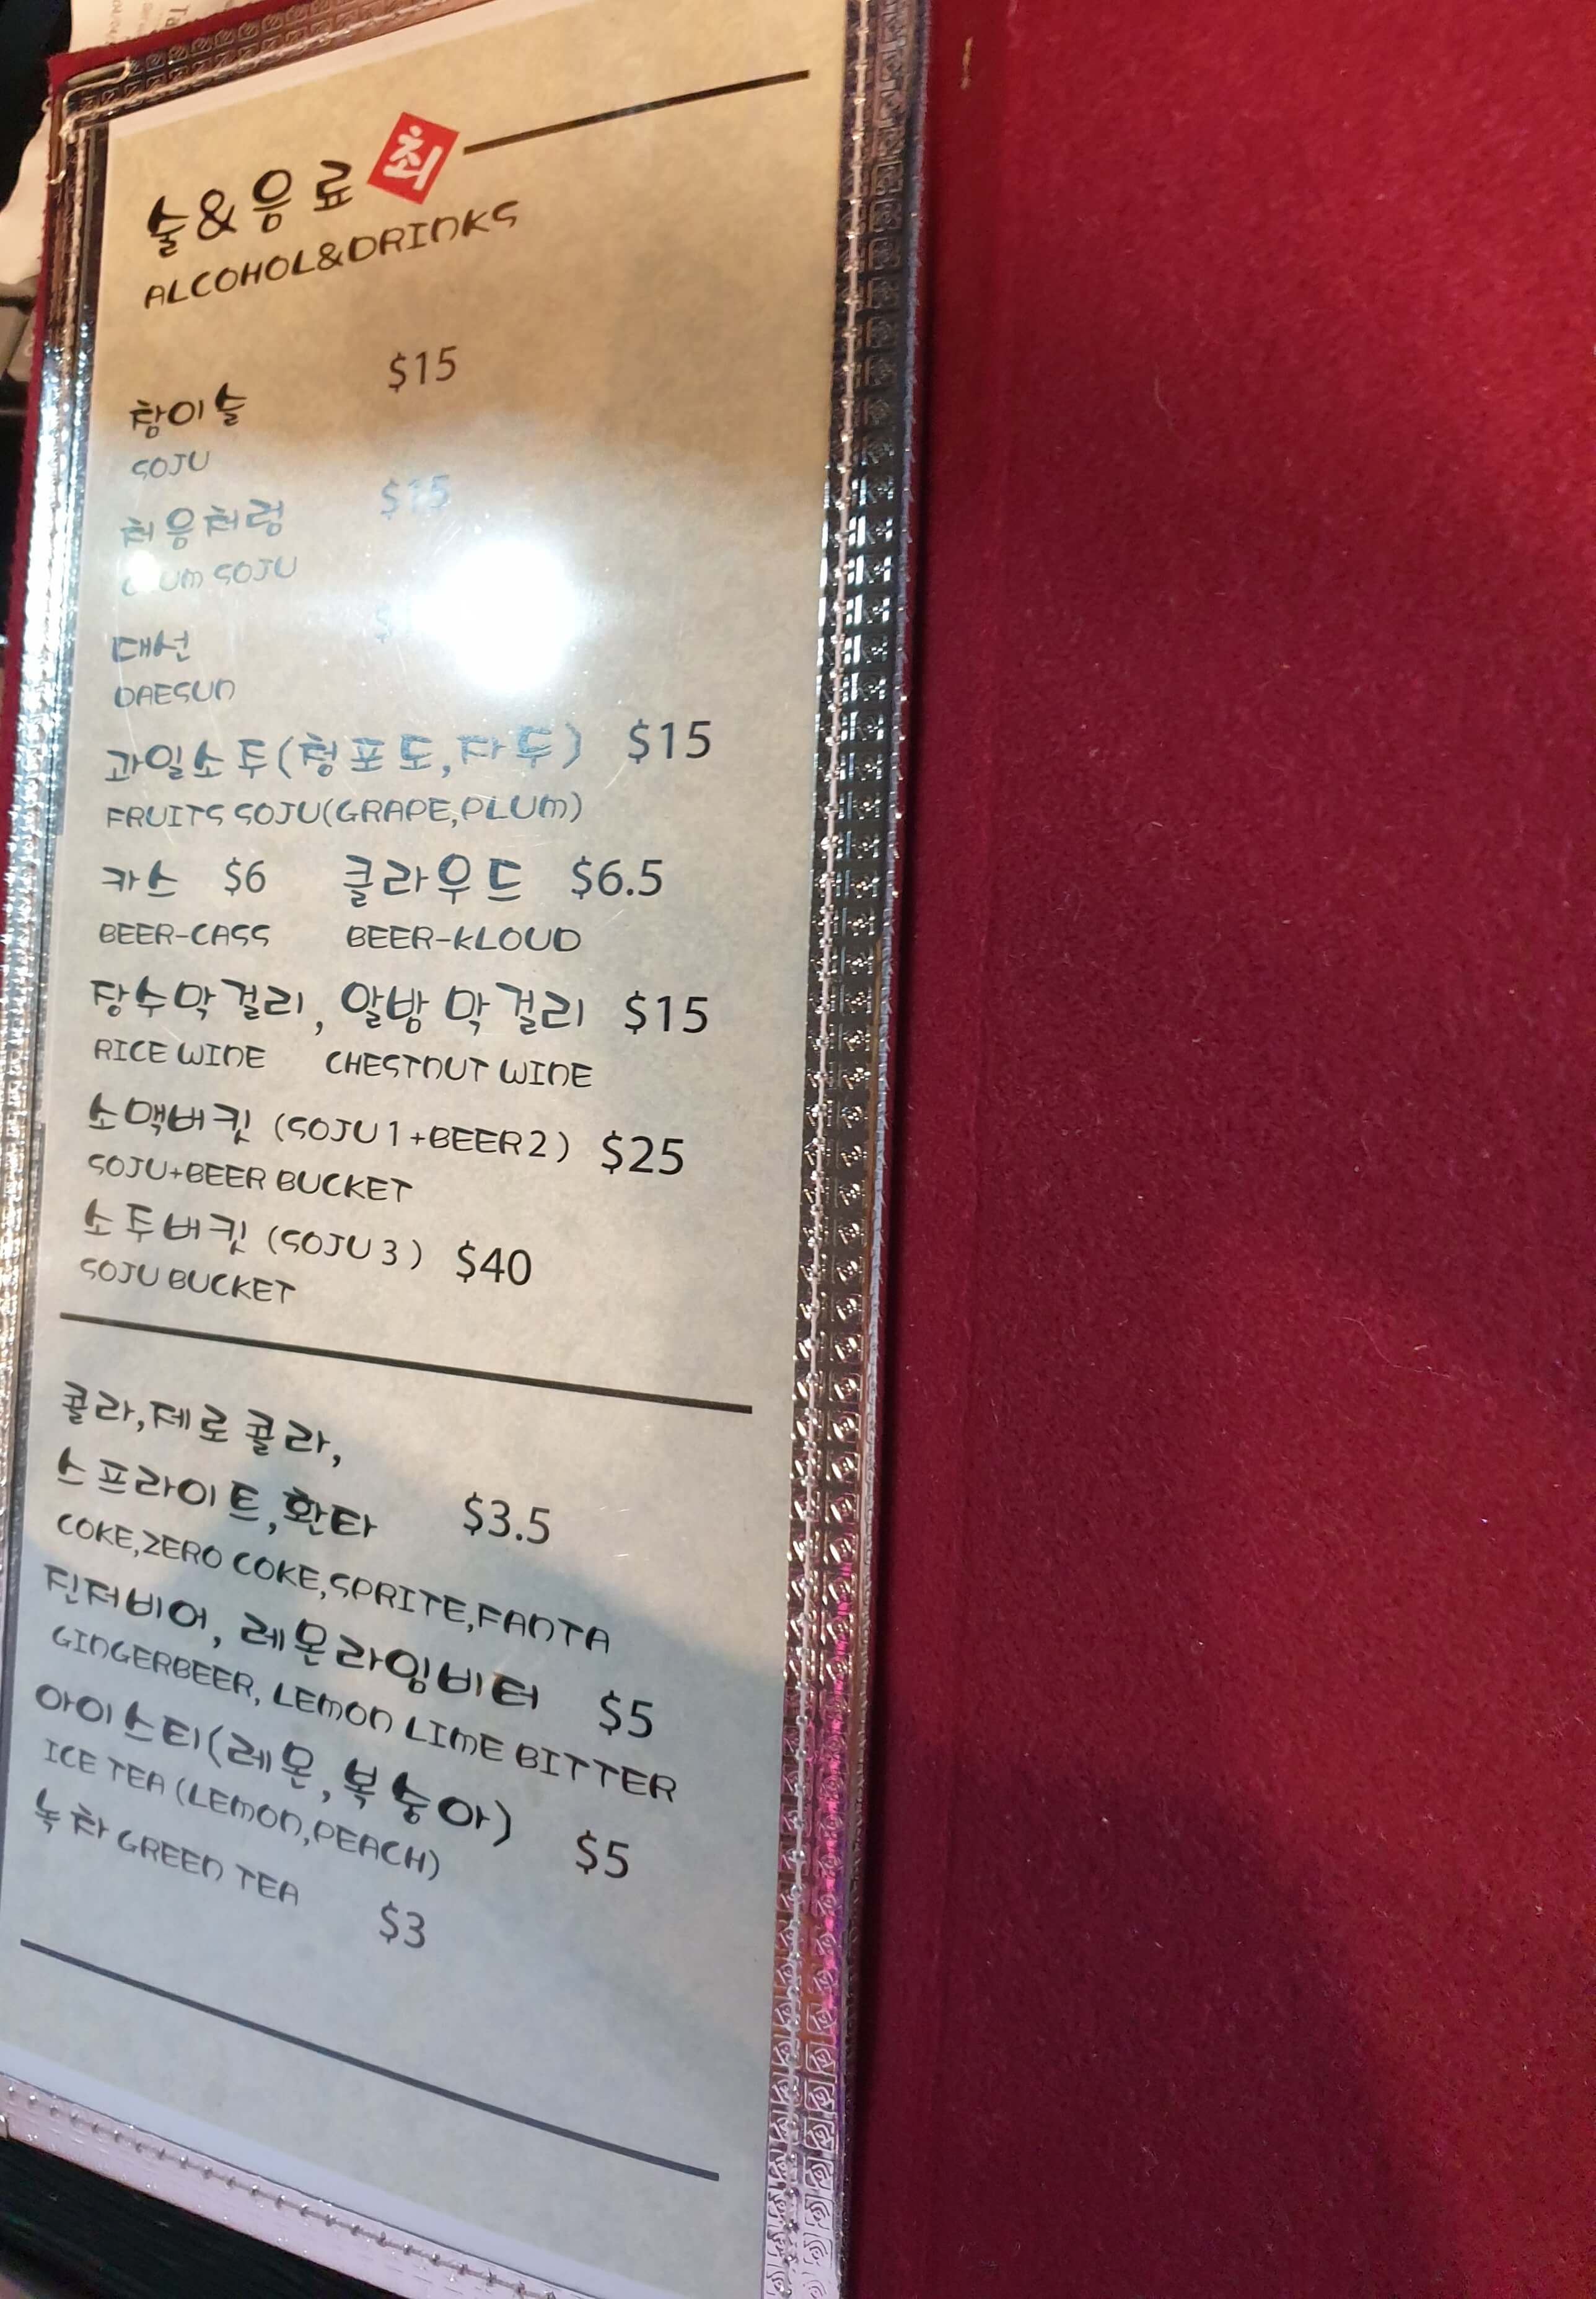 술&음료 최
ALCOHOL&DRINKS
참이슬 $15
SOJU
처음처럼 $15
SOJU
대선
DAESUN
과일소주(청포도,자두) $15
FRUITS SOJU(GRAPE,PLUM)
카스 $6 클라우드 $6.5
BEER-CASS BEER-KLOUD
장수막걸리, 알밤막걸리 $15
RICE WINE CHESTNUT WINE
소맥버킷 (SOJU 1+BEER 2) $25
SOJU+BEER BUCKET
소주버킷 (SOJU 3) $40
SOJU BUCKET
콜라,제로콜라,
스프라이트,환타 $3.5
COKE,ZERO COKE,SPRITE,FANTA
진저비어, 레몬라임비터 $5
GINGERBEER, LEMON LIME BITTER
아이스티(레몬,복숭아) $5
ICE TEA (LEMON,PEACH)
녹차 GREEN TEA $3